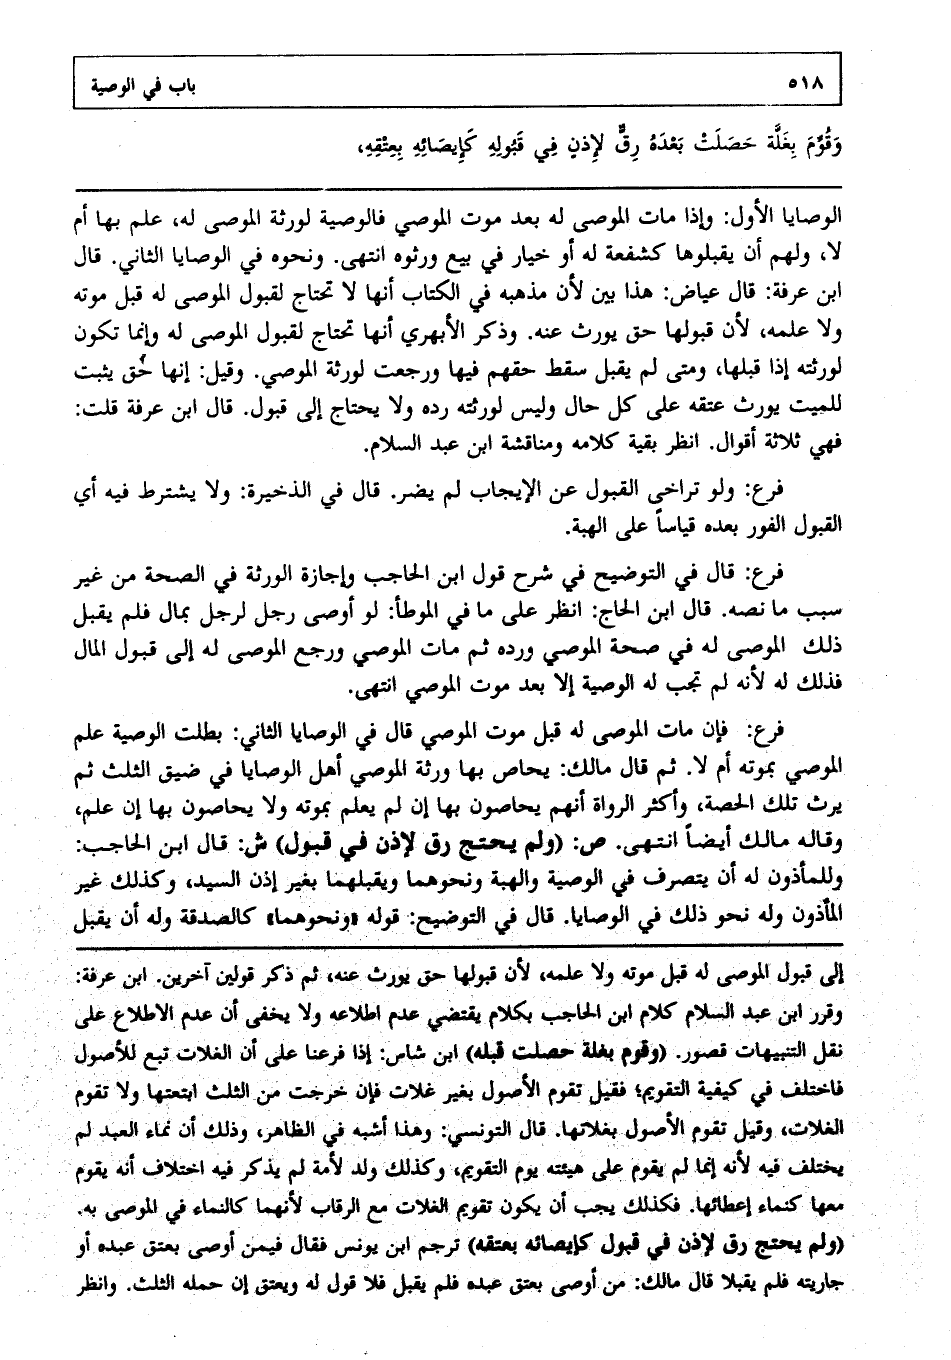 ٥١٨ باب في الوصية
وَقُوِّمَ بِغَلَّة حَصَلَتْ بَعْدَهُ رِقٌّ لإِذنٍ فِي قَبُولِهِ كَإِيصَائِهِ بِعِتْقِهِ،
الوصايا الأول: وإذا مات الموصى له بعد موت الموصي فالوصية لورثة الموصى له، علم بها أم
لا، ولهم أن يقبلوها كشفعة له أو خيار في بيع ورثوه انتهى. ونحوه في الوصايا الثاني. قال
ابن عرفة: قال عياض: هذا بين لأن مذهبه في الكتاب أنها لا تحتاج لقبول الموصى له قبل موته
ولا علمه، لأن قبولها حق يورث عنه. وذكر الأبهري أنها تحتاج لقبول الموصى له وإنما تكون
لورثته إذا قبلها، ومتى لم يقبل سقط حقهم فيها ورجعت لورثة الموصي. وقيل: إنها حق يثبت
للميت يورث عتقه على كل حال وليس لورثته رده ولا يحتاج إلى قبول. قال ابن عرفة قلت:
فهي ثلاثة أقوال. انظر بقية كلامه ومناقشة ابن عبد السلام.
فرع: ولو تراخى القبول عن الإيجاب لم يضر. قال في الذخيرة: ولا يشترط فيه أي
القبول الفور بعده قياساً على الهبة.
فرع: قال في التوضيح في شرح قول ابن الحاجب وإجازة الورثة في الصحة من غير
سبب ما نصه. قال ابن الحاج: انظر على ما في الموطأ: لو أوصى رجل لرجل بمال فلم يقبل
ذلك الموصى له في صحة الموصي ورده ثم مات الموصي ورجع الموصى له إلى قبول المال
فذلك له لأنه لم تجب له الوصية إلا بعد موت الموصي انتهى.
فرع: فإن مات الموصى له قبل موت الموصي قال في الوصايا الثاني: بطلت الوصية علم
الموصي بموته أم لا. ثم قال مالك: يحاص بها ورثة الموصي أهل الوصايا في ضيق الثلث ثم
يرث تلك الحصة، وأكثر الرواة أنهم يحاصون بها إن لم يعلم بموته ولا يحاصون بها إن علم،
وقاله مالك أيضاً انتهى. ص: (ولم يحتج رق لإذن في قبول) ش: قال ابن الحاجب:
وللمأذون له أن يتصرف في الوصية والهبة ونحوهما ويقبلهما بغير إذن السيد، وكذلك غير
المأذون وله نحو ذلك في الوصايا. قال في التوضيح: قوله «ونحوهما» كالصدقة وله أن يقبل
إلى قبول الموصى له قبل موته ولا علمه، لأن قبولها حق يورث عنه، ثم ذكر قولين آخرين. ابن عرفة:
وقرر ابن عبد السلام كلام ابن الحاجب بكلام يقتضي عدم اطلاعه ولا يخفى أن عدم الاطلاع على
نقل التنبيهات قصور. (وقوم بغلة حصلت قبله) ابن شاس: إذا فرعنا على أن الغلات تبع للأصول
فاختلف في كيفية التقويم؛ فقيل تقوم الأصول بغير غلات فإن خرجت من الثلث ابتعتها ولا تقوم
الغلات، وقيل تقوم الأصول بغلاتها. قال التونسي: وهذا أشبه في الظاهر، وذلك أن نماء العبد لم
يختلف فيه لأنه إنما لم يقوم على هيئته يوم التقويم، وكذلك ولد لأمة لم يذكر فيه اختلاف أنه يقوم
معها كنماء إعطائها. فكذلك يجب أن يكون تقويم الغلات مع الرقاب لأنهما كالنماء في الموصى به.
(ولم يحتج رق لإذن في قبول كإيصائه بعتقه) ترجم ابن يونس فقال فيمن أوصى بعتق عبده أو
جاريته فلم يقبلا قال مالك: من أوصى بعتق عبده فلم يقبل فلا قول له ويعتق إن حمله الثلث. وانظر